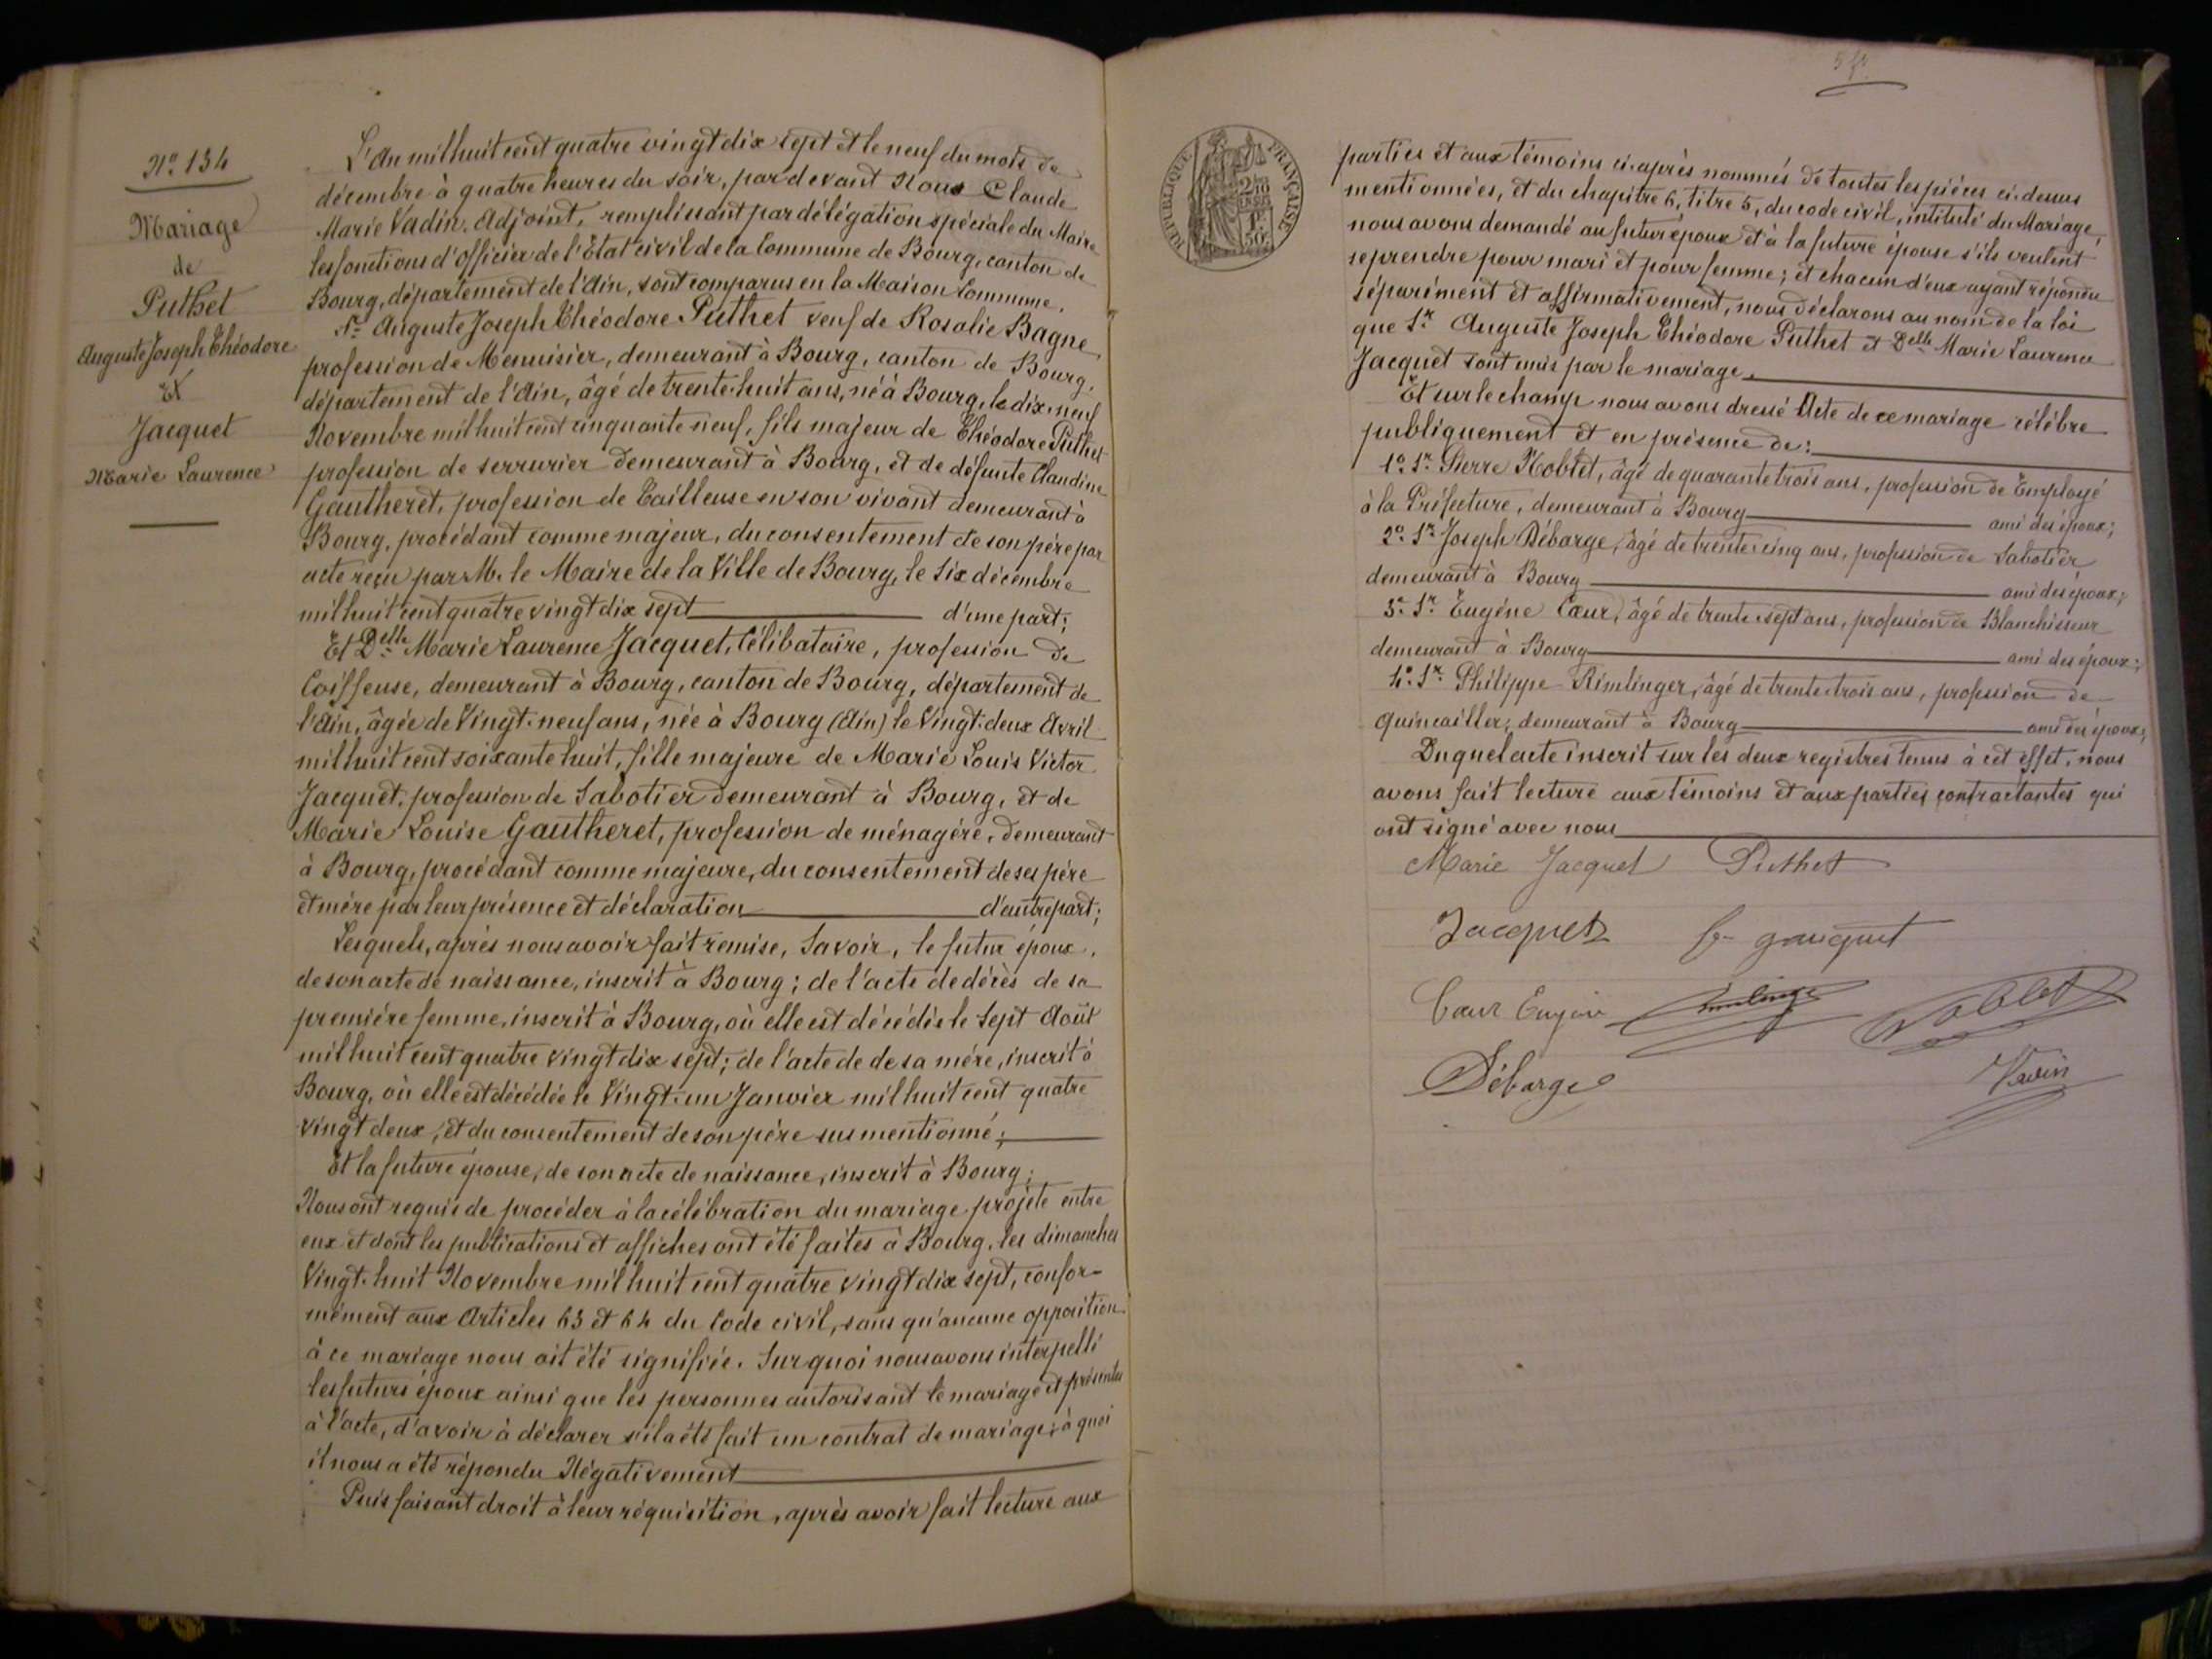 N° 134
Mariage
de
Puthet
Auguste Joseph Théodore
Et
Jacquet
Marie Laurence
L'An mil huit cent quatre vingt dix sept et le neuf du mois de
décembre à quatre heures du soir, par devant Nous Claude
Marie Vadin. Adjoint, remplissant par délégation spéciale du Maire
les fonctions d'Officier de l'Etat civil de la Commune de Bourg, canton de
Bourg, département de l'Ain, sont comparus en la Maison Commune.
Sr Auguste Joseph Théodore Puthet veuf de Rosalie Bagne,
profession de Menuisier, demeurant à Bourg, canton de Bourg,
département de l'Ain, âgé de trente-huit ans, né à Bourg, le dix-neuf
Novembre mil huit cent cinquante neuf, fils majeur de Théodore Puthet
profession de serrurier demeurant à Bourg, et de défunte Claudine
Gautheret, profession de Tailleuse en son vivant demeurant à
Bourg, procédant comme majeur, du consentement de son père par
acte reçu par M. le Maire de la Ville de Bourg, le Six décembre
mil huit cent quatre vingt dix sept d'une part;
Et Delle Marie Laurence Jacquet, Célibataire, profession de
Coiffeuse, demeurant à Bourg, canton de Bourg, département de
l'Ain, âgée de Vingt-neuf ans, née à Bourg (Ain) le Vingt-deux Avril
mil huit cent soixante huit, fille majeure de Marie Louis Victor
Jacquet, profession de Sabotier demeurant à Bourg, et de
Marie Louise Gautheret, profession de ménagère, demeurant
à Bourg, procédant comme majeure, du consentement de ses père
et mère par leur présence et déclaration d'autre part;
Lesquels, après nous avoir fait remise, Savoir, le futur époux,
de son acte de naissance, inscrit à Bourg; de l'acte de décès de sa
première femme, inscrit à Bourg, où elle est décédée le Sept Août
mil huit cent quatre vingt dix sept; de l'acte de de sa mère, inscrit à
Bourg, où elle est décédée le Vingt-un Janvier mil huit cent quatre
vingt deux, et du consentement de son père sus mentionné;
Et la future épouse, de son acte de naissance, inscrit à Bourg;
Nous ont requis de procéder à la célébration du mariage projeté entre
eux et dont les publications et affiches ont été faites à Bourg, les dimanches
Vingt-huit Novembre mil huit cent quatre vingt dix sept, confor-
mément aux Articles 63 et 64 du Code civil, sans qu'aucune opposition
à ce mariage nous ait été signifiée. Sur quoi nous avons interpellé
les futurs époux ainsi que les personnes autorisant le mariage et présentes
à l'acte, d'avoir à déclarer s'il a été fait un contrat de mariage; à quoi
il nous a été répondu Négativement
Puis faisant droit à leur réquisition, après avoir fait lecture aux
RÉPUBLIQUE FRANÇAISE
parties et aux témoins ci-après nommés de toutes les pièces ci-dessus
mentionnées, et du chapitre 6, titre 5, du code civil, intitulé du Mariage,
nous avons demandé au futur époux et à la future épouse s'ils veulent
se prendre pour mari et pour femme; et chacun d'eux ayant répondu
séparément et affirmativement, nous déclarons au nom de la loi
que Sr Auguste Joseph Théodore Puthet et Delle Marie Laurence
Jacquet sont unis par le mariage.
Et sur le champ nous avons dressé Acte de ce mariage célébré
publiquement et en présence de:
1° Sr Pierre Noblet, âgé de quarante trois ans, profession de Employé
à la Préfecture, demeurant à Bourg ami des époux;
2° Sr Joseph Débarge, âgé de trente-cinq ans, profession de Sabotier
demeurant à Bourg ami des époux;
3° Sr Eugène Cœur, âgé de trente-sept ans, profession de Blanchisseur
demeurant à Bourg ami des époux;
4° Sr Philippe Rimlinger, âgé de trente-trois ans, profession de
quincailler, demeurant à Bourg ami des époux;
Duquel acte inscrit sur les deux registres tenus à cet effet, nous
avons fait lecture aux témoins et aux parties contractantes qui
ont signé avec nous
Marie Jacquet Puthet
Jacquet
Cœur Eugène Noblet
Débarge Vadin